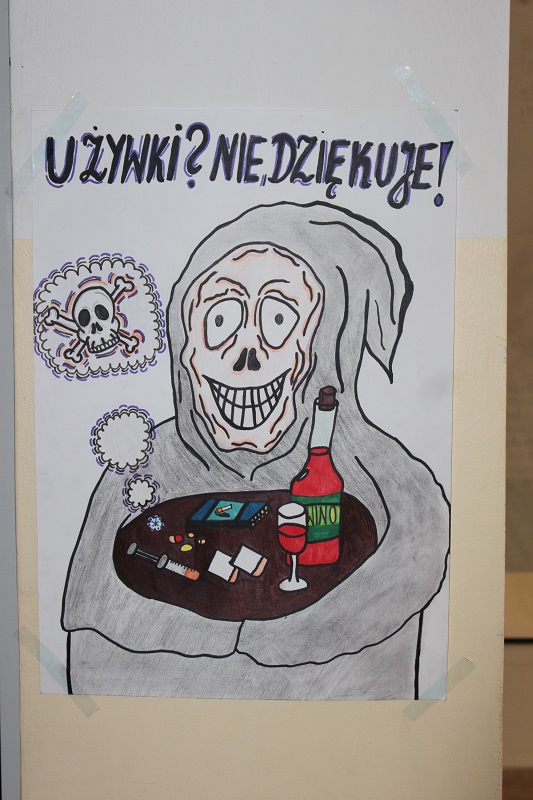 UŻYWKI? NIE, DZIĘKUJE!
WINO